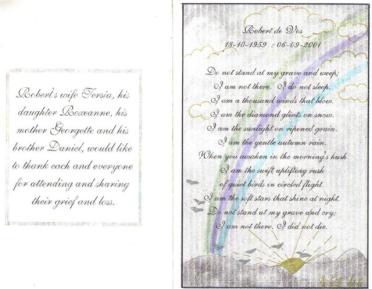 Robert's wife Tersia, his
daughter Roxanne, his
mother Georgette and his
brother Daniel, would like
to thank each and everyone
for attending and sharing
their grief and loss.
Robert de Vis
18-10-1959 : 06-09-2001
Do not stand at my grave and weep,
I am not there. I do not sleep.
I am a thousand winds that blow.
I am the diamond glints on snow.
I am the sunlight on ripened grain.
I am the gentle autumn rain.
When you awaken in the morning's hush
I am the swift uplifting rush
of quiet birds in circled flight.
I am the soft stars that shine at night.
Do not stand at my grave and cry;
I am not there. I did not die.